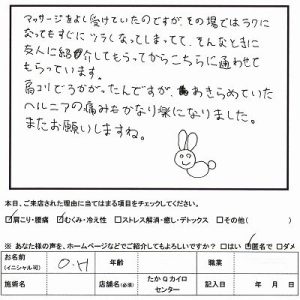 マッサージをよく受けていたのですが、その場ではラクに
なってもすぐにツラくなってしまってて、そんなときに
友人に紹介してもらってからこちらに通わせて
もらっています。
肩コリどうかがったんですが、あきらめていた
ヘルニアの痛みもかなり楽になりました。
またお願いしますね。
本日、ご来店された理由に当てはまる項目をチェックしてください。
☑肩こり・腰痛 ☑むくみ・冷え性 □ストレス解消・癒し・デトックス □その他( )
※ あなた様の声を、ホームページなどでご紹介してもよろしいですか? □はい ☑匿名で □ダメ
お名前 (イニシャル可) O.H 年齢 職業
店舗名(必須) たかQカイロセンター 記入日 年 月 日